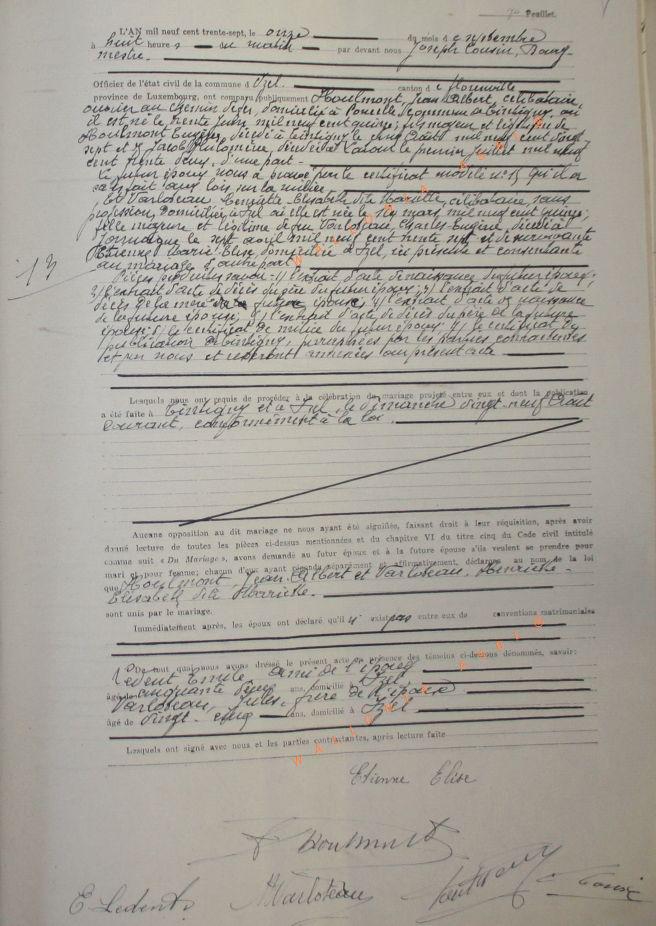 7º Feuillet.
L'AN mil neuf cent trente-sept, le onze du mois de septembre
à huit heures du matin par devant nous Joseph Cousin, Bourg-
mestre.
Officier de l'état civil de la commune d'Izel. canton de Florenville
province de Luxembourg, ont comparu publiquement Houlmont, Jean Albert, célibataire,
ouvrier au chemin de fer, domicilié à commune de Tintigny, où
il est né le trente Juin mil neuf cent onze; fils majeur et légitime de
Houlmont Eugène, décédé à Tintigny le cinq Août mil neuf cent vingt
sept et de Philomène, décédée à le premier Juillet mil neuf
cent trente deux, d'une part.
Le futur époux nous a prouvé par le certificat modèle nº 15 qu'il a
satisfait aux lois sur la milice.
Et Varloteau Henriette Elisabeth dite Mariette, célibataire, sans
profession, domiciliée à Izel où elle est née le dix mars mil neuf cent quinze;
fille majeure et légitime de feu Varloteau, Charles Eugène, décédé à
le sept avril mil neuf cent trente et de survivante
Etienne Marie Elise, domiciliée à Izel, ici présente et consentante
au mariage d'autre part.
Pièces produites savoir: 1) l'extrait d'acte de naissance du futur époux;
2) l'extrait d'acte de décès du père du futur époux; 3) l'extrait d'acte de
décès de la mère du futur époux; 4) l'extrait d'acte de naissance
de la future épouse; 5) l'extrait d'acte de décès du père de la future
épouse; 6) le certificat de milice du futur époux 7) le certificat de
publication de Tintigny, par les parties contractantes
et par nous et resteront annexées au présent acte
13
Lesquels nous ont requis de procéder à la célébration du mariage projeté entre eux et dont la publication
a été faite à Tintigny et à Izel, le dimanche vingt-neuf Août
courant, conformément à la loi.
Aucune opposition au dit mariage ne nous ayant été signifiée, faisant droit à leur réquisition, après avoir
donné lecture de toutes les pièces ci-dessus mentionnées et du chapitre VI du titre cinq du Code civil intitulé
comme suit « Du Mariage », avons demandé au futur époux et à la future épouse s'ils veulent se prendre pour
mari et pour femme; chacun d'eux ayant répondu séparément et affirmativement, déclarons au nom de la loi
que Houlmont, Jean Albert et Varloteau, Henriette-
Elisabeth dite Mariette.
sont unis par le mariage.
Immédiatement après, les époux ont déclaré qu'il n'existe pas entre eux de conventions matrimoniales
De tout quoi nous avons dressé le présent acte en présence des témoins ci-dessous dénommés, savoir:
Ledent Emile, ami de l'époux
âgé de cinquante deux ans, domicilié à Izel.
Varloteau, Jules, frère de l'épouse
âgé de vingt-cinq ans, domicilié à Izel.
Lesquels ont signé avec nous et les parties contractantes, après lecture faite
Etienne Elise
Houlmont
E. Ledent
Varloteau